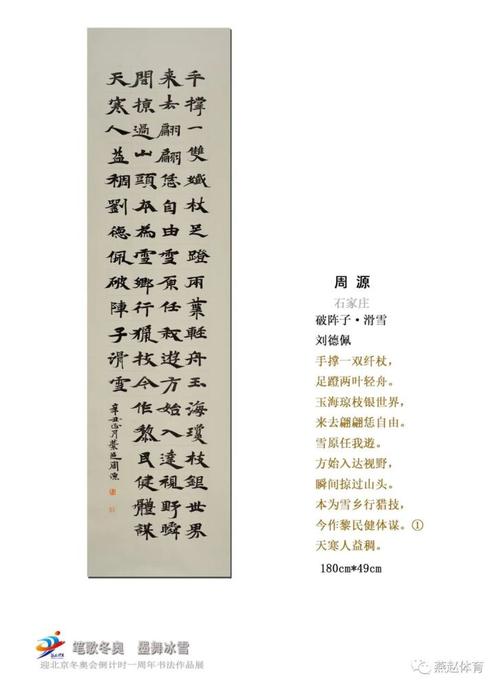 手撐一雙纖杖足蹬兩葉輕舟玉海瓊枝銀世界
来去翩翩恁自由雪原任我遊方始入達視野瞬
間掠過山頭本為雪鄉行獵技今作黎民健體謀
天寒人益稠劉德佩破陣子滑雪
辛丑正月邑周源
周 源
石家庄
破阵子·滑雪
刘德佩
手撑一双纤杖，
足蹬两叶轻舟。
玉海琼枝银世界，
来去翩翩恁自由。
雪原任我遊。
方始入达视野，
瞬间掠过山头。
本为雪乡行猎技，
今作黎民健体谋。①
天寒人益稠。
180cm*49cm
笔歌冬奥 墨舞冰雪
迎北京冬奥会倒计时一周年书法作品展
燕赵体育